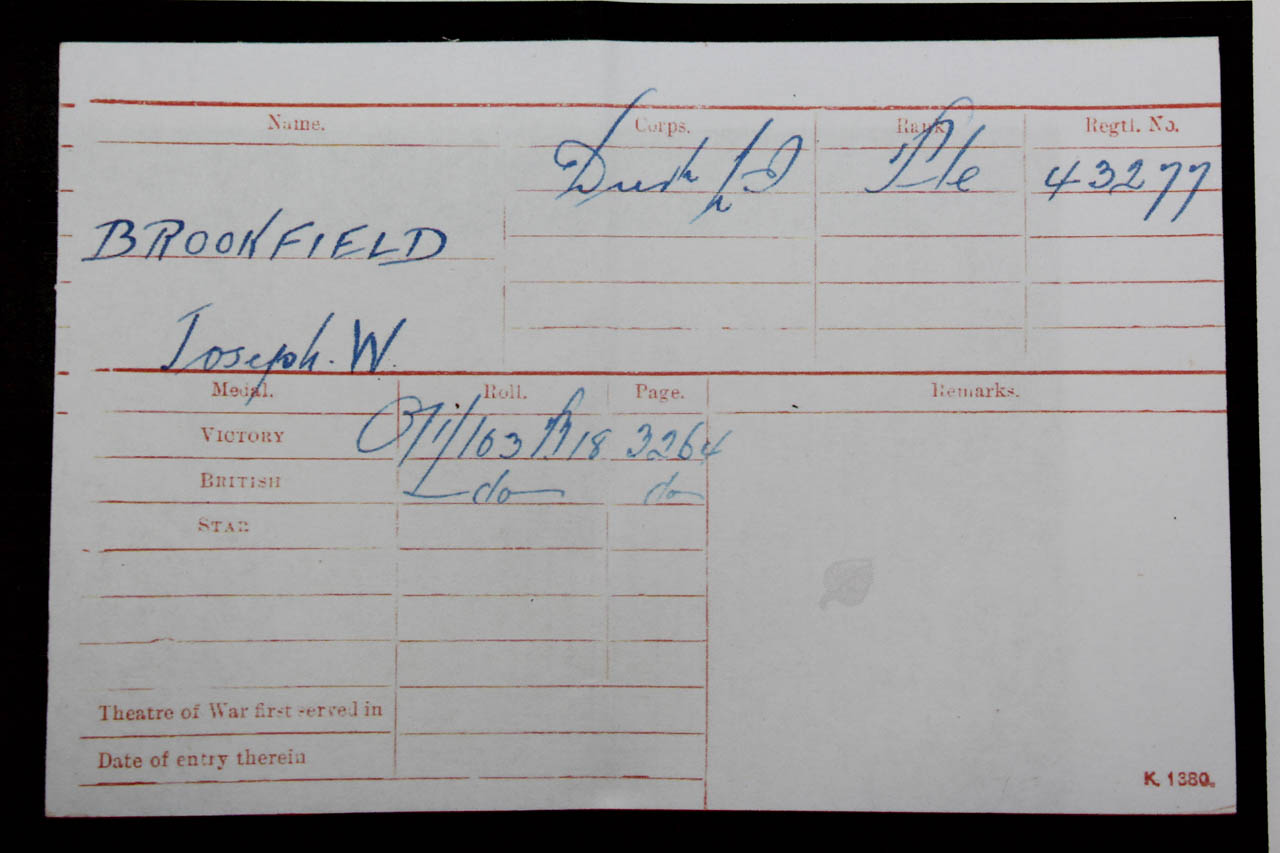 Name. Corps. Rank Regtl. No.
Durh L I Pte 43277
BROOKFIELD
Joseph. W.
Medal. Roll. Page. Remarks.
VICTORY O/1/103 B18 3264
BRITISH do do
STAR
Theatre of War first served in
Date of entry therein
K. 1380.